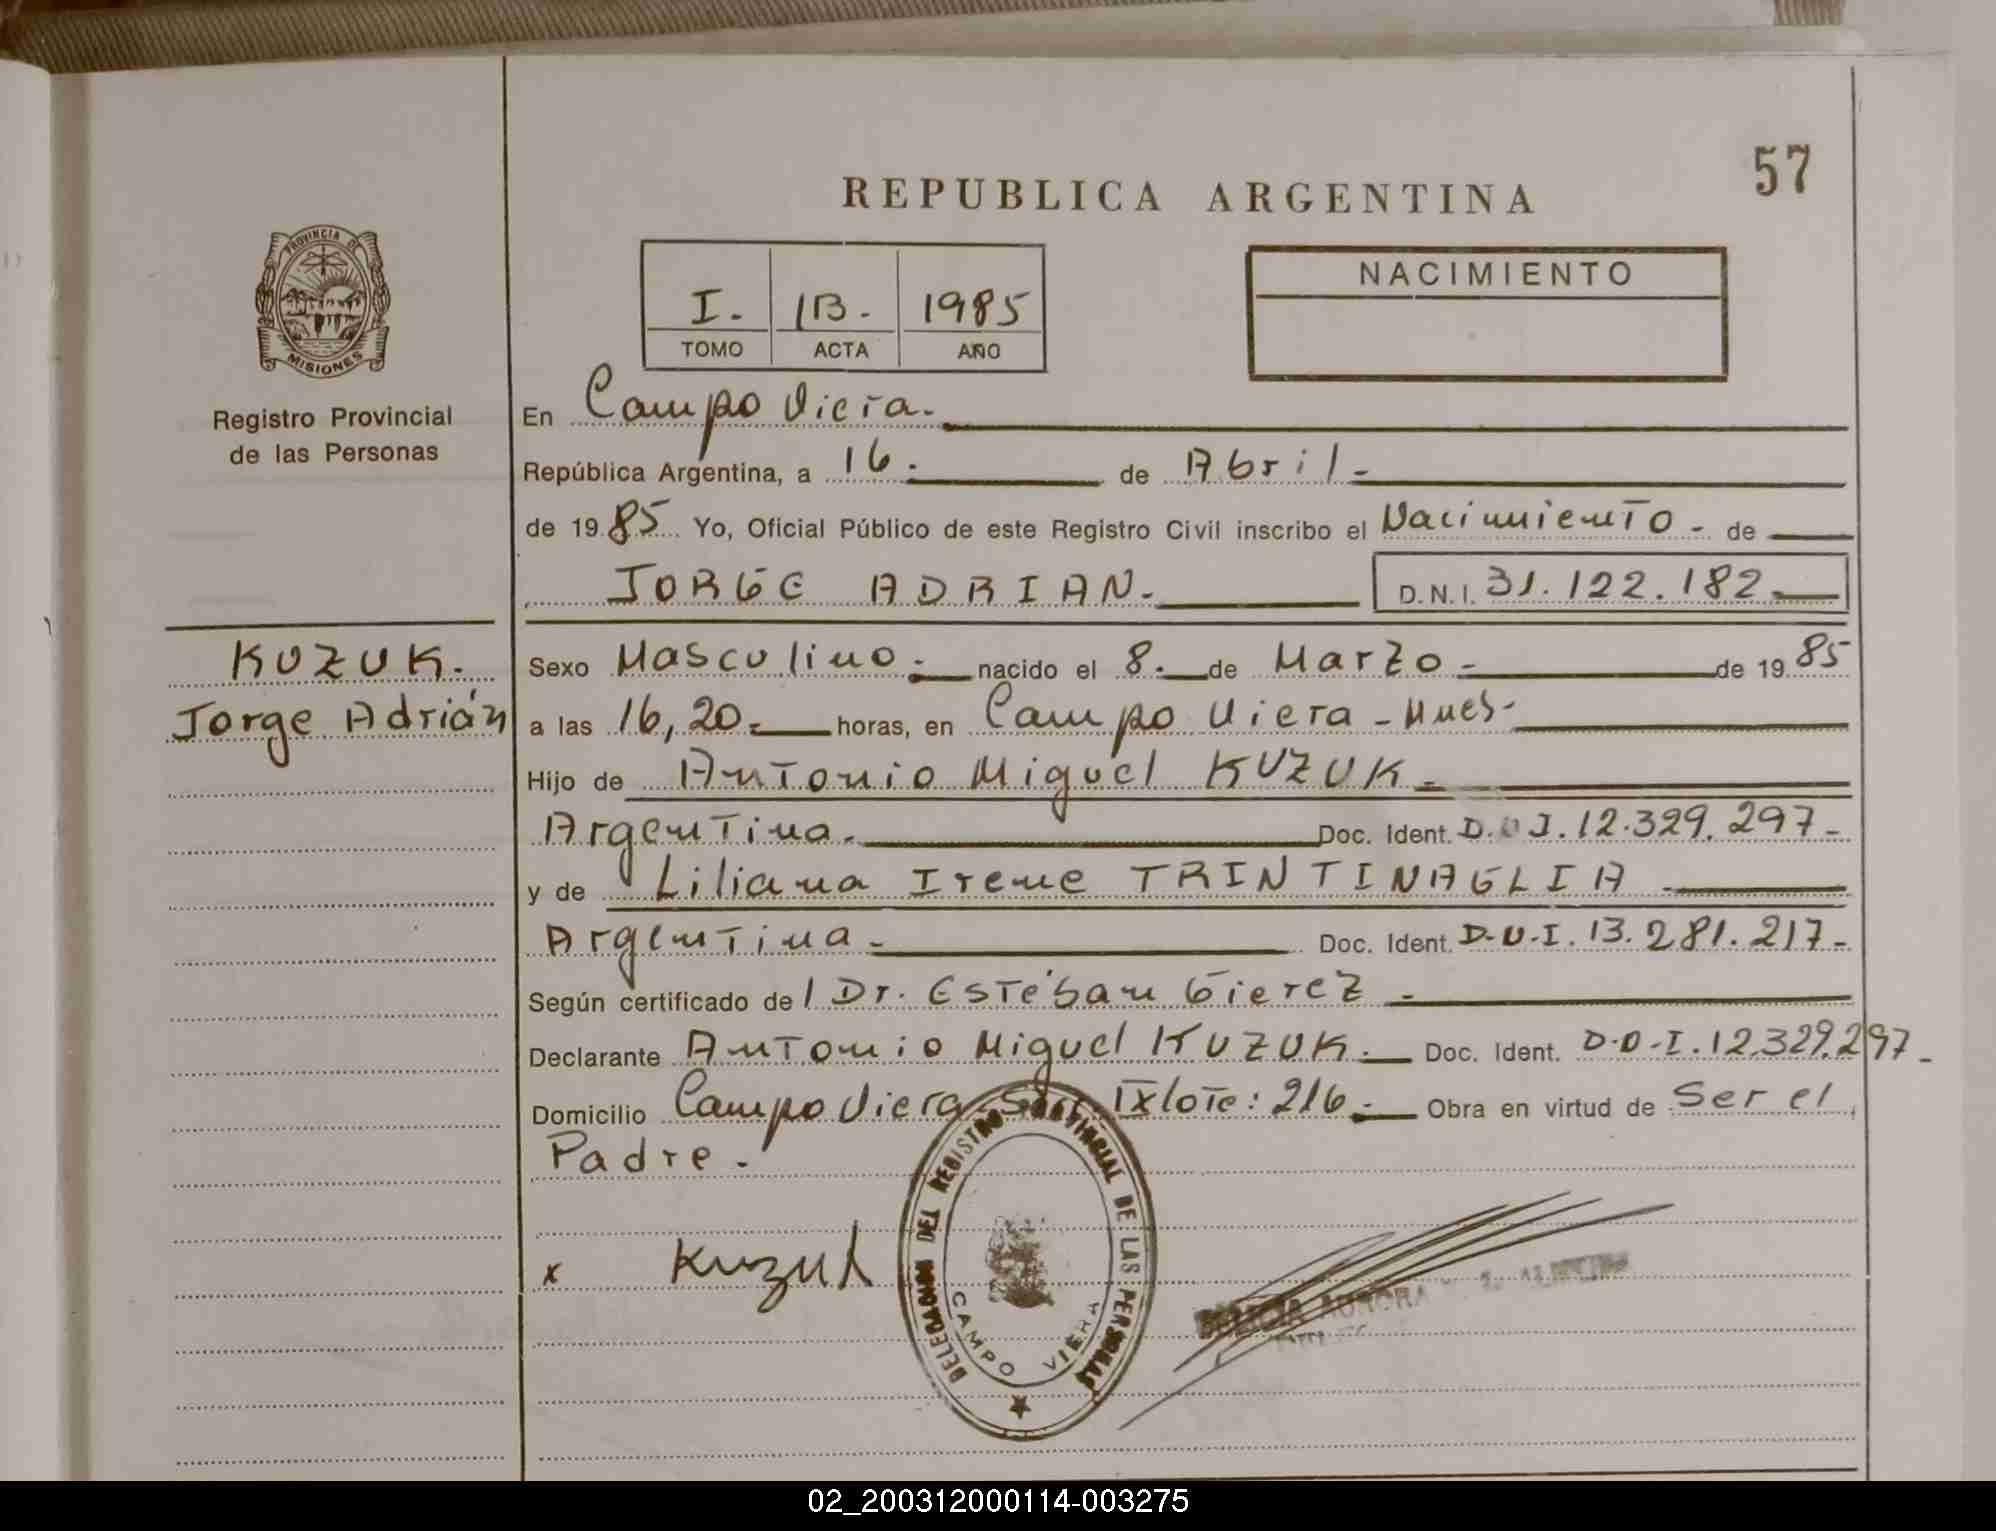 57
REPUBLICA ARGENTINA
PROVINCIA DE
MISIONES
I. 113. 1985
TOMO ACTA AÑO
NACIMIENTO
Registro Provincial
de las Personas
En Campo Viera.
República Argentina, a 16. de Abril-
de 1985 Yo, Oficial Público de este Registro Civil inscribo el Nacimiento - de
JORGE ADRIAN.- D.N.I. 31.122.182.-
KUZUK.
Jorge Adrián
Sexo Masculino.- nacido el 8.- de Marzo.- de 1985
a las 16,20.- horas, en Campo Viera - Mnes-
Hijo de Antonio Miguel KUZUK.-
Argentina.- Doc. Ident. D. I. 12.329.297-
y de Liliana Irene TRINTINAGLIA -
Argentina.- Doc. Ident. D.U.I. 13.281.217-
Según certificado de l Dr. Estéban Gierez -
Declarante Antonio Miguel KUZUK.- Doc. Ident. D.O.I. 12.329.297-
Domicilio Campo Viera-Sec. IX lote: 216.- Obra en virtud de Ser el
Padre.-
x Kuzuk
DELEGACION DEL REGISTRO PROVINCIAL DE LAS PERSONAS
CAMPO VIERA
AURORA
02_200312000114-003275